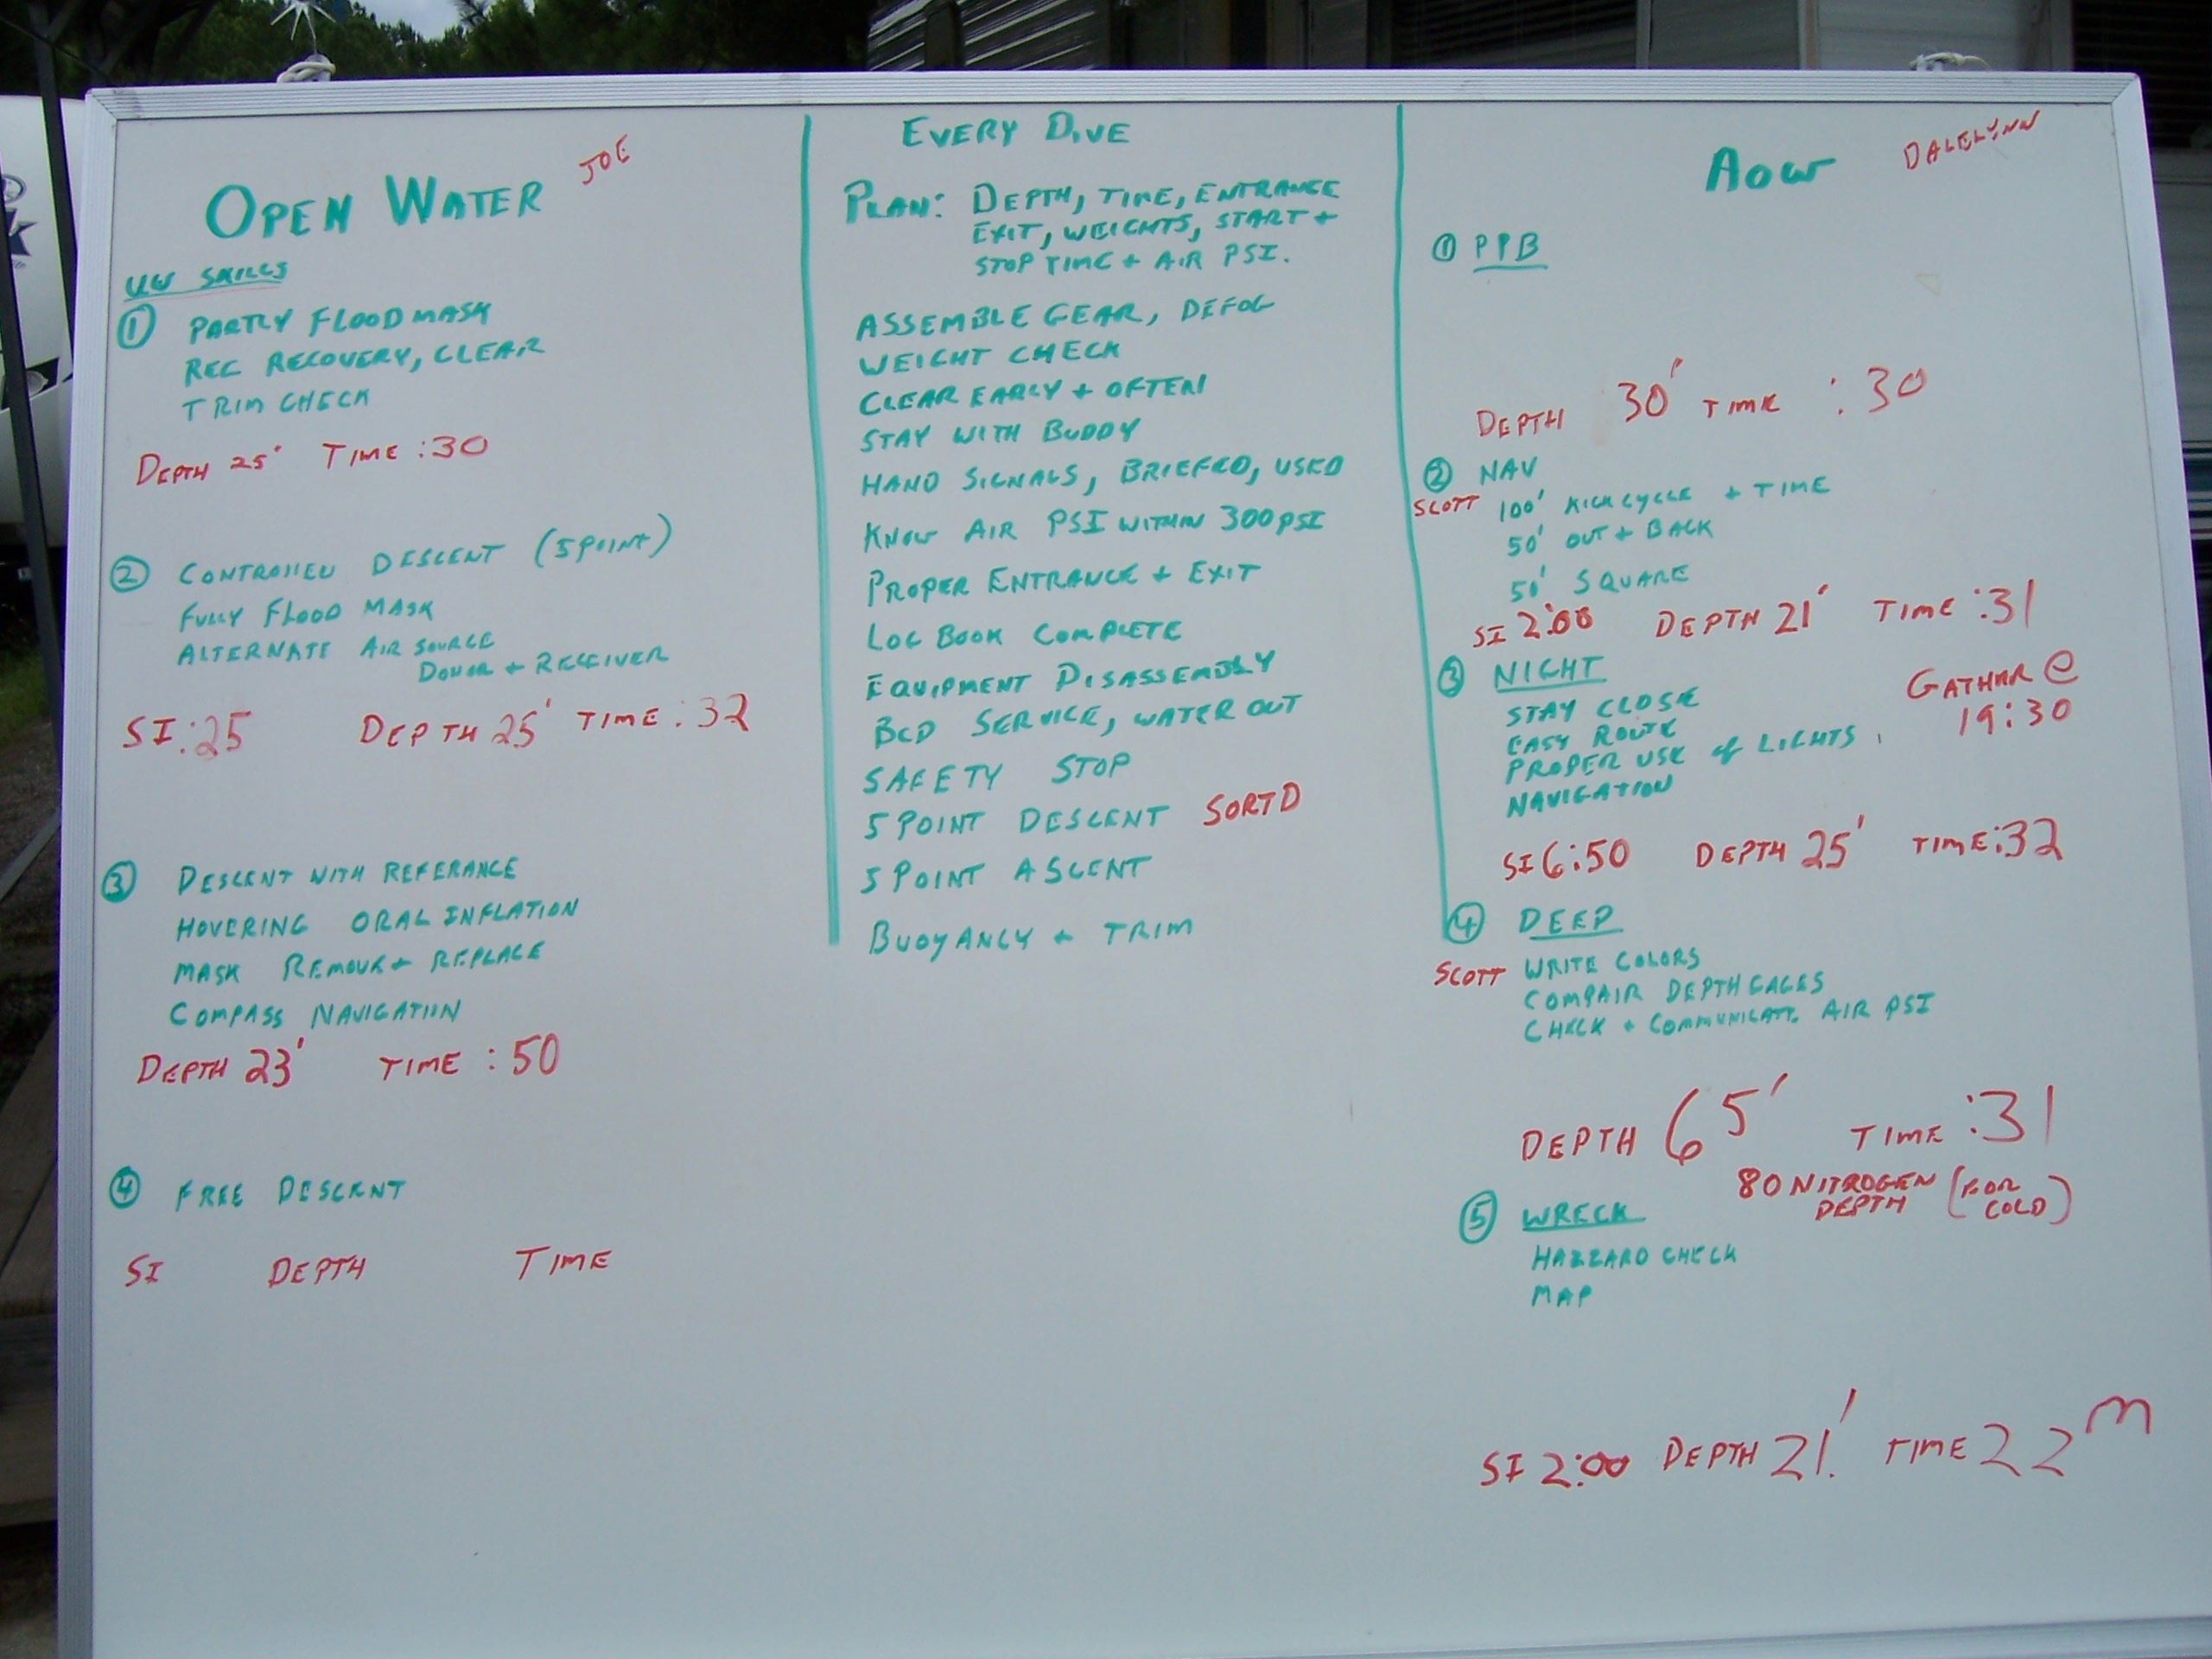 OPEN WATER JOE
UW SKILLS
① PARTLY FLOOD MASK
REG RECOVERY, CLEAR
TRIM CHECK
DEPTH 25' TIME :30
② CONTROLLED DESCENT (5 POINT)
FULLY FLOOD MASK
ALTERNATE AIR SOURCE
DONOR + RECEIVER
SI :25 DEPTH 25' TIME :32
③ DESCENT WITH REFERANCE
HOVERING ORAL INFLATION
MASK REMOVE + REPLACE
COMPASS NAVIGATION
DEPTH 23' TIME :50
④ FREE DESCENT
SI DEPTH TIME
EVERY DIVE
PLAN: DEPTH, TIME, ENTRANCE
EXIT, WEIGHTS, START +
STOP TIME + AIR PSI.
ASSEMBLE GEAR, DEFOG
WEIGHT CHECK
CLEAR EARLY + OFTEN
STAY WITH BUDDY
HAND SIGNALS, BRIEFED, USED
KNOW AIR PSI WITHIN 300 PSI
PROPER ENTRANCE + EXIT
LOG BOOK COMPLETE
EQUIPMENT DISASSEMBLY
BCD SERVICE, WATER OUT
SAFETY STOP
5 POINT DESCENT SORTD
5 POINT ASCENT
BUOYANCY + TRIM
AOW DALELYNN
① PPB
DEPTH 30' TIME :30
② NAV
SCOTT 100' KICK CYCLE + TIME
50' OUT + BACK
50' SQUARE
SI 2:00 DEPTH 21' TIME :31
③ NIGHT GATHER @
STAY CLOSE 19:30
EASY ROUTE
PROPER USE of LIGHTS
NAVIGATION
SI 6:50 DEPTH 25' TIME :32
④ DEEP
SCOTT WRITE COLORS
COMPAIR DEPTH GAGES
CHECK + COMMUNICATE AIR PSI
DEPTH 65' TIME :31
80 NITROGEN DEPTH (FOR COLD)
⑤ WRECK
HAZZARD CHECK
MAP
SI 2:00 DEPTH 21' TIME 22 m